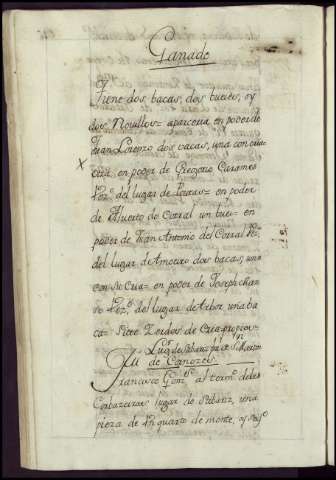 Ganado
Tiene dos bacas, dos bueies, y
dos Nouillos= aparceria, en poder de
Juan Lorenzo dos bacas, una con cua
cria en poder de Gregorio Caramés
Vez.º del lugar de = en poder
de Alverto de Corral un buei= en
poder de Juan Antonio del Corral Vz.º
del lugar de Amoeiro dos bacas, una
con su Cria= en poder de Joseph
Vez.º del lugar de Arbor una ba
ca= Siete Zerdos de Cria propios=
Lug.r de Sebanz
de Canozes
Francisco Gom.s al term.º de las
Corbazeiras lugar de Sebanz, una
pieza de un quarto de monte, y